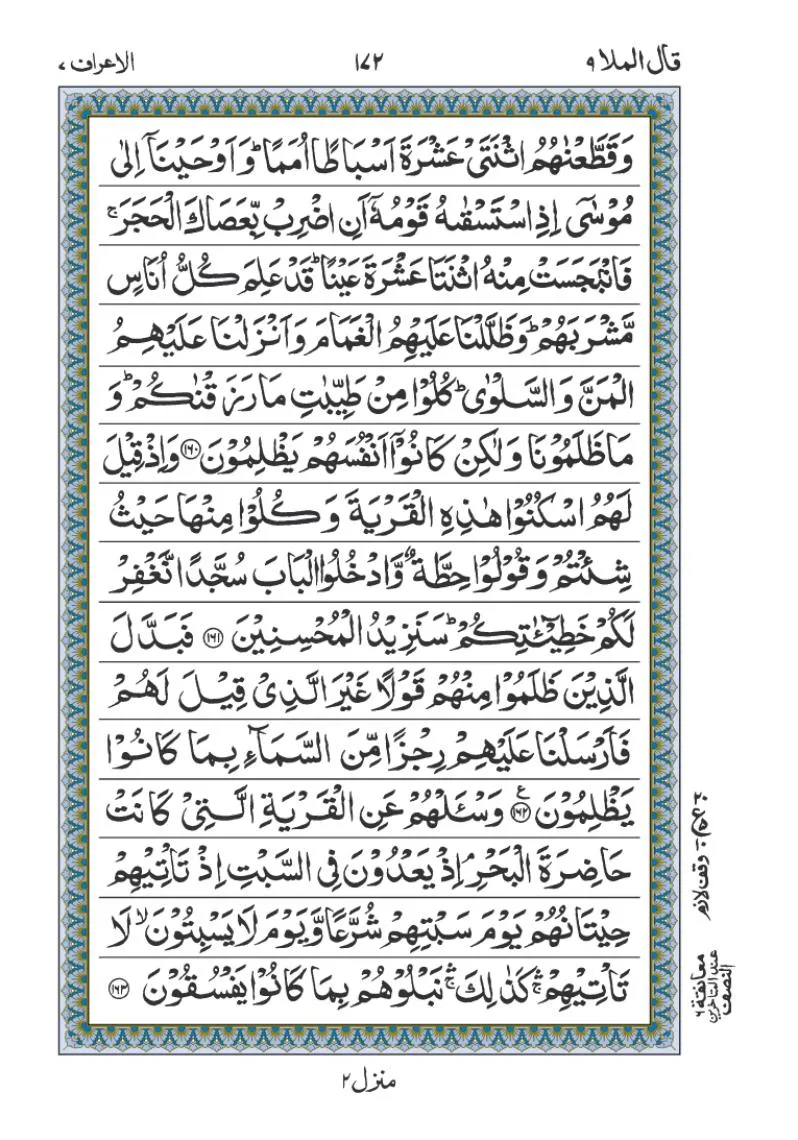 قال الملا ۹
۱۷۲
الاعراف ۷
وَقَطَّعْنٰهُمُ اثْنَتَیْ عَشْرَةَ اَسْبَاطًا اُمَمًا ؕ وَ اَوْحَیْنَاۤ اِلٰی
مُوْسٰۤی اِذِ اسْتَسْقٰىهُ قَوْمُهٗۤ اَنِ اضْرِبْ بِّعَصَاكَ الْحَجَرَ ۚ
فَانْۢبَجَسَتْ مِنْهُ اثْنَتَا عَشْرَةَ عَیْنًا ؕ قَدْ عَلِمَ كُلُّ اُنَاسٍ
مَّشْرَبَهُمْ ؕ وَظَلَّلْنَا عَلَیْهِمُ الْغَمَامَ وَاَنْزَلْنَا عَلَیْهِمُ
الْمَنَّ وَالسَّلْوٰی ؕ كُلُوْا مِنْ طَیِّبٰتِ مَا رَزَقْنٰكُمْ ؕ وَ
مَا ظَلَمُوْنَا وَلٰكِنْ كَانُوْۤا اَنْفُسَهُمْ یَظْلِمُوْنَ ﴿۱۶۰﴾ وَاِذْ قِیْلَ
لَهُمُ اسْكُنُوْا هٰذِهِ الْقَرْیَةَ وَكُلُوْا مِنْهَا حَیْثُ
شِئْتُمْ وَقُوْلُوْا حِطَّةٌ وَّادْخُلُوا الْبَابَ سُجَّدًا نَّغْفِرْ
لَكُمْ خَطِیْٓـٰٔتِكُمْ ؕ سَنَزِیْدُ الْمُحْسِنِیْنَ ﴿۱۶۱﴾ فَبَدَّلَ
الَّذِیْنَ ظَلَمُوْا مِنْهُمْ قَوْلًا غَیْرَ الَّذِیْ قِیْلَ لَهُمْ
فَاَرْسَلْنَا عَلَیْهِمْ رِجْزًا مِّنَ السَّمَآءِ بِمَا كَانُوْا
یَظْلِمُوْنَ ﴿۱۶۲﴾ ع وَسْـَٔلْهُمْ عَنِ الْقَرْیَةِ الَّتِیْ كَانَتْ
حَاضِرَةَ الْبَحْرِ ۘ اِذْ یَعْدُوْنَ فِی السَّبْتِ اِذْ تَاْتِیْهِمْ
حِیْتَانُهُمْ یَوْمَ سَبْتِهِمْ شُرَّعًا وَّیَوْمَ لَا یَسْبِتُوْنَ ۙ لَا
تَاْتِیْهِمْ ۛۚ كَذٰلِكَ ۛۚ نَبْلُوْهُمْ بِمَا كَانُوْا یَفْسُقُوْنَ ﴿۱۶۳﴾
وقف لازم
معانقة ۶
عند المتاخرین
النصف
منزل ۲